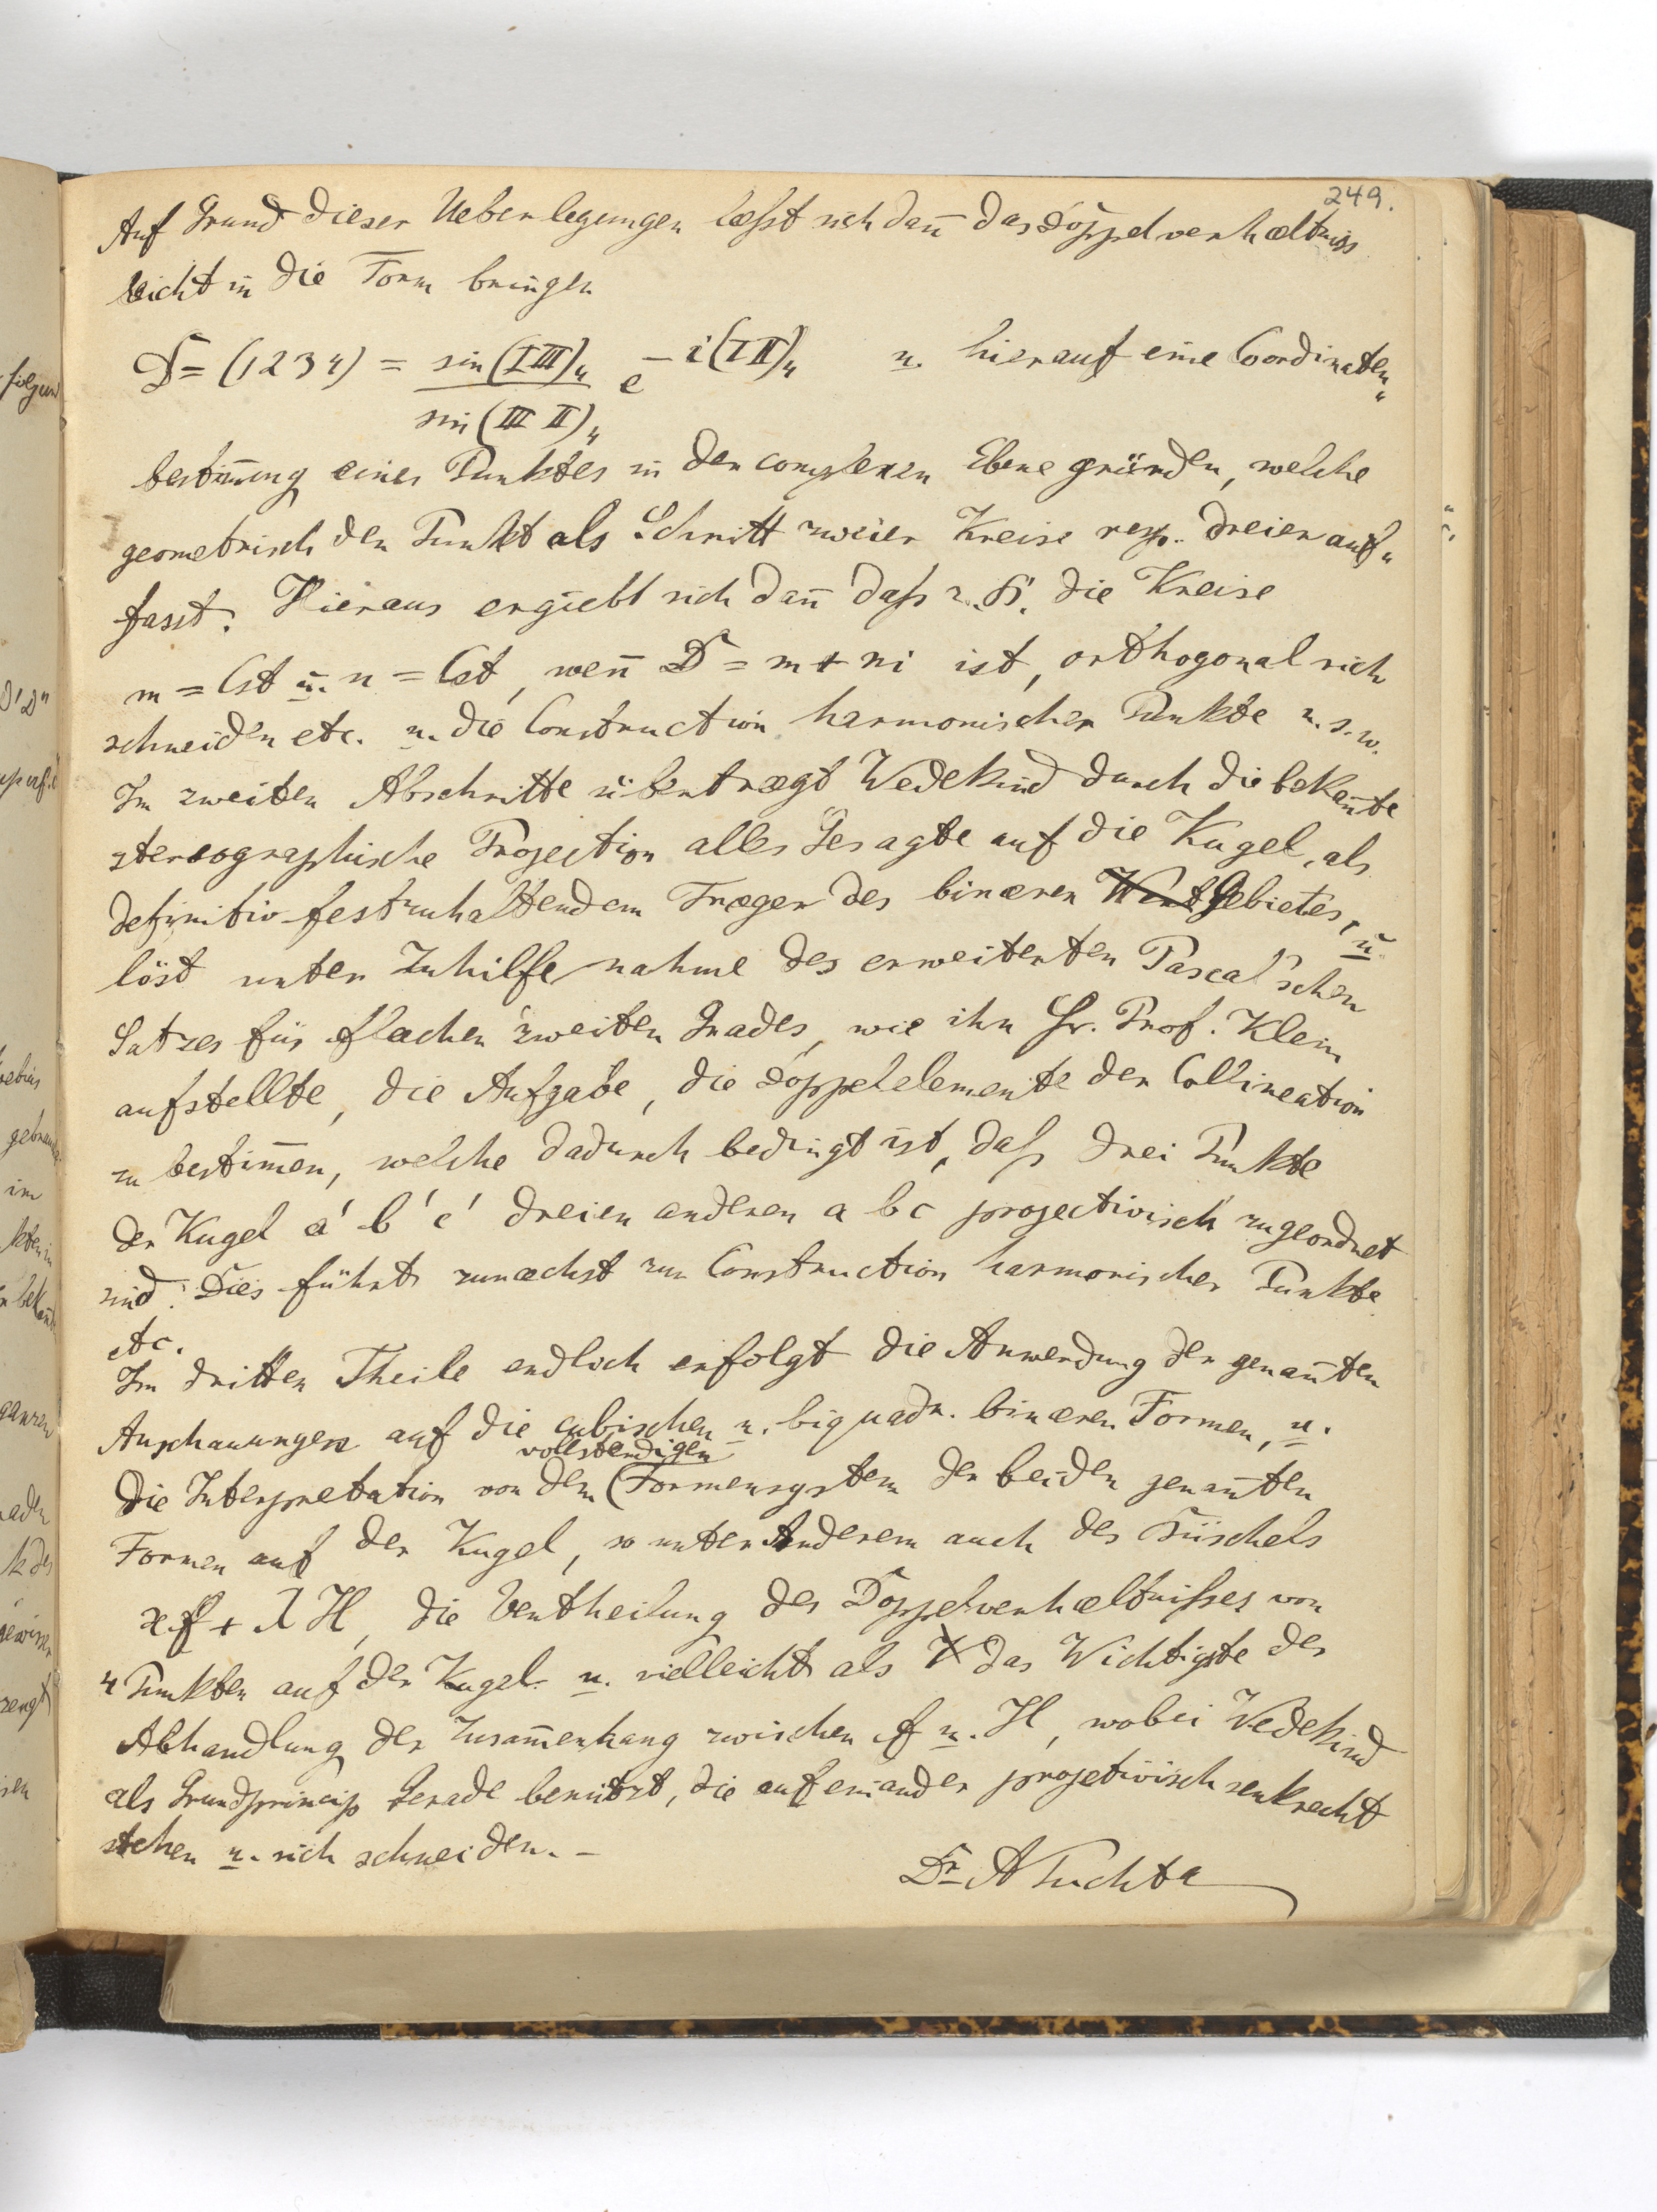 249.
Auf Grund dieser Ueberlegungen læßt sich dañ das Doppelverhæltniss
leicht in die Form bringen
D = (1234) = sin (I III)₄ / sin (III II)₄ e^{-i(I II)₄} u. hierauf eine Coordinaten„
bestim̅ung eines Punktes in der complexen Ebene gründen, welche
geometrisch den Punkt als Schnitt zweier Kreise resp. dreier auf„
fasst. Hieraus ergiebt sich dañ daß z. B. die Kreise
m = Cst u. n = Cst, weñ D = m + ni ist, orthogonal sich
schneiden etc. u. die Construction harmonischer Punkte u. s. w.
Im zweiten Abschnitte übertrægt Wedekind durch die bekañte
stereographische Projection alles Gesagte auf die Kugel, als
definitiv festzuhaltendem Træger des binæren Gebietes, u.
löst unter Zuhilfenahme des erweiterten Pascal'schen
Satzes für Flæchen zweiten Grades, wie ihn Hr. Prof. Klein
aufstellte, die Aufgabe, die Doppelelemente der Collineation
zu bestim̅en, welche dadurch bedingt ist, daß drei Punkte
der Kugel a' b' c' dreien anderen a b c projectivisch zugeordnet
sind. Dies führt zunæchst zur Construction harmonischer Punkte
etc.
Im dritten Theile endlich erfolgt die Anwendung der genañten
Anschauungen auf die cubischen u. biquadr. binæren Formen, u.
vollstændigen
die Interpretation von dem (Formensystem der beiden genañten
Formen auf der Kugel, so unter Anderem auch des Büschels
ϰf + λH, die Vertheilung des Doppelverhæltnißes von
4 Punkten auf der Kugel u. vielleicht als das Wichtigste der
Abhandlung der Zusam̅enhang zwischen f u. H, wobei Wedekind
als Grundprincip Gerade benützt, die aufeinander projetivisch senkrecht
stehen u. sich schneiden. –
Dr A Puchta